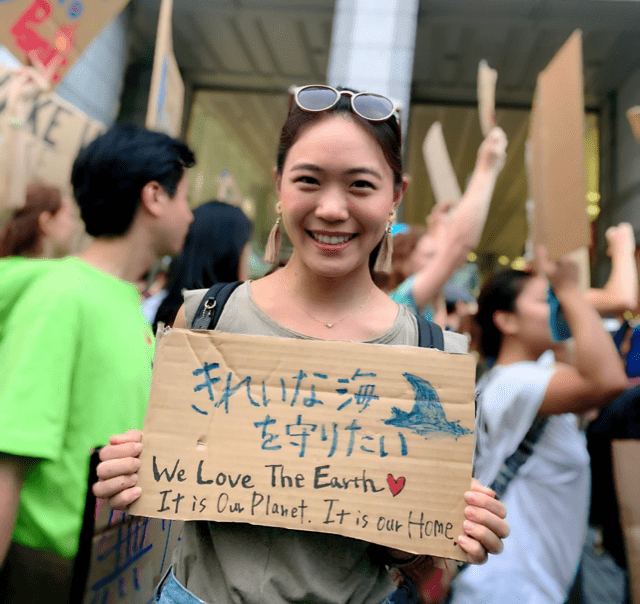 きれいな海
を守りたい
We Love The Earth
It is Our Planet. It is our Home